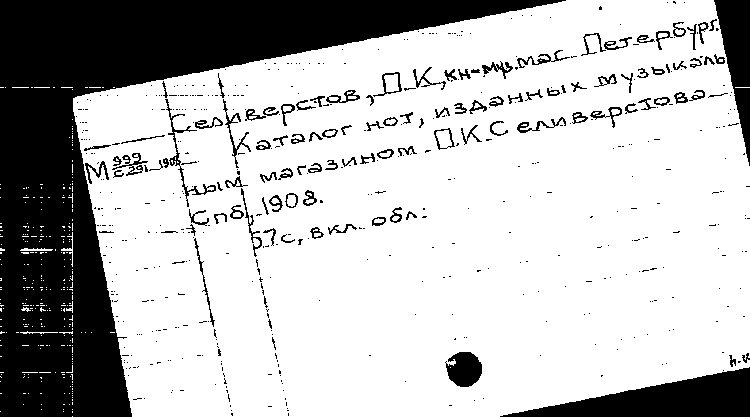 Селиверстов, П.К, кн-муз.маг Петербург.
Каталог нот, изданных музыкаль
ным магазином П.К.Селиверстова
Спб, 1908.
57с, вкл. обл.
М 999
1908